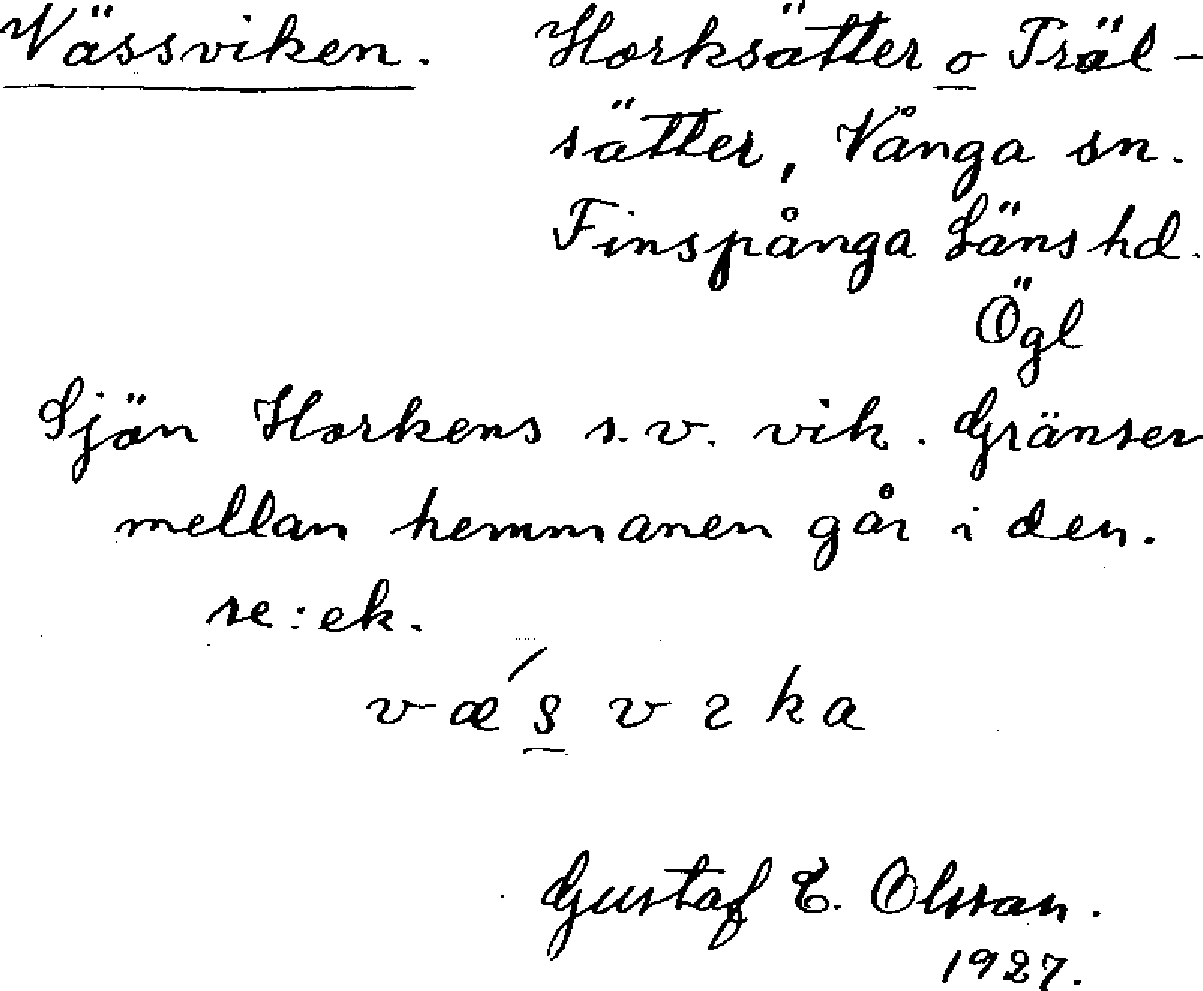 Vässviken. Horksätter o Träl-
sätter, Vånga sn.
Finspånga Läns hd.
Ögl
Sjön Horkens s.v. vik. Gränsen
mellan hemmanen går i den.
se: ek.
væ´s v ɩ k a
Gustaf E. Olsson.
1927.